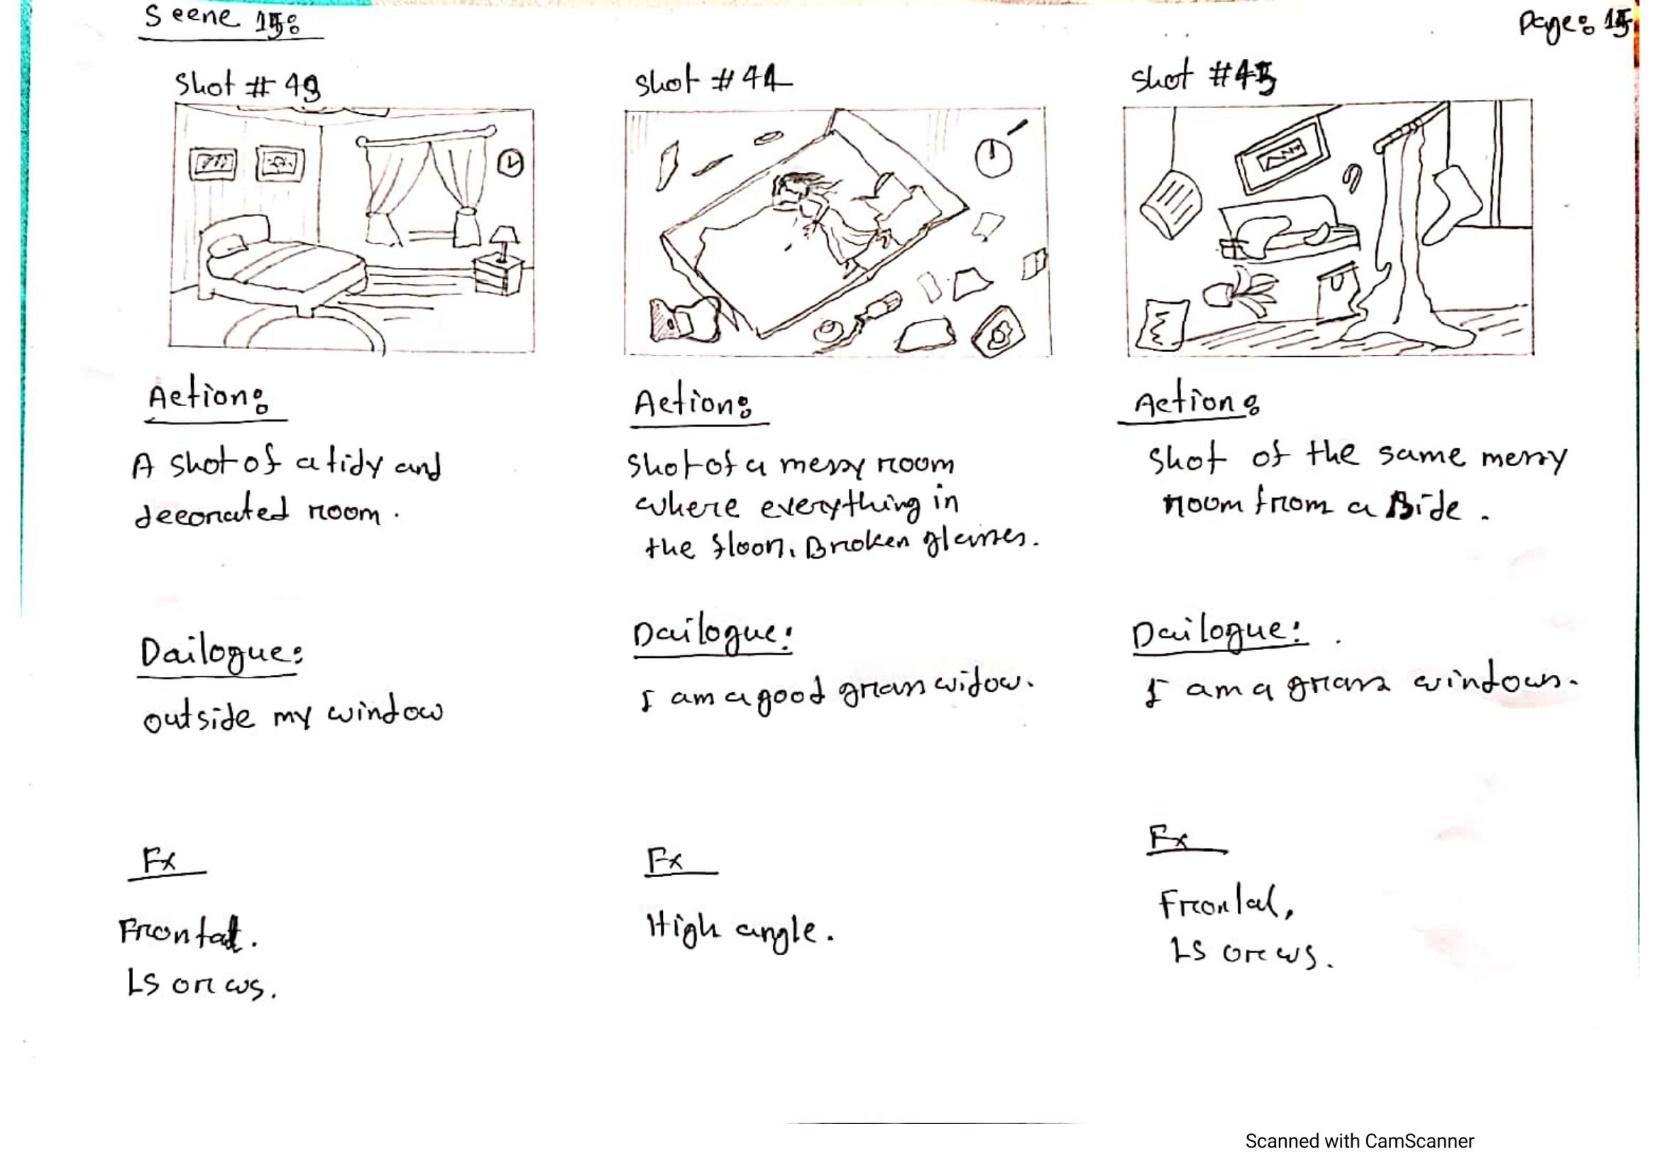 Scene 15:
Page: 15
Shot # 43
Action:
A shot of a tidy and
decorated room.
Dailogue:
outside my window
Fx
Frontal.
LS or ws.
Shot # 44
Action:
Shot of a messy room
where everything in
the floor. Broken glasses.
Dailogue:
I am a good grass widow.
Fx
High angle.
Shot # 45
Action:
Shot of the same messy
room from a side.
Dailogue:
I am a grass windows.
Fx
Frontal,
LS or ws.
Scanned with CamScanner